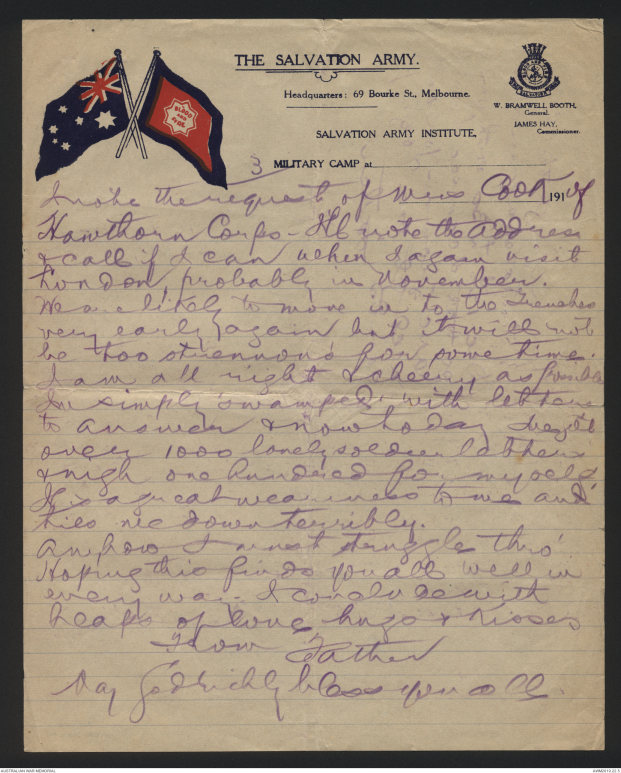 THE SALVATION ARMY.
Headquarters: 69 Bourke St., Melbourne.
W. BRAMWELL BOOTH,
General.
JAMES HAY,
Commissioner.
SALVATION ARMY INSTITUTE,
3 MILITARY CAMP at
BLOOD AND FIRE
I note the request of Miss Cook of
191
Hawthorn Corps - I'll note the address
& call if I can when I again visit
London, probably in November.
We are likely to move in to the Trenches
very early again but it will not
be too strennons for some time.
I am all right & cheery as possible
Im simply swamped with letters
to answer &
over 1000 lonely soldier letters
& nigh one hundred for myself
It is a great weariness to me and
ties me down terribly.
Anyhow I must struggle thro'
Hoping this finds you all well in
every way - I conclude with
heaps of love hugs & kisses
From Father
May God richly bless you all.
AUSTRALIAN WAR MEMORIAL